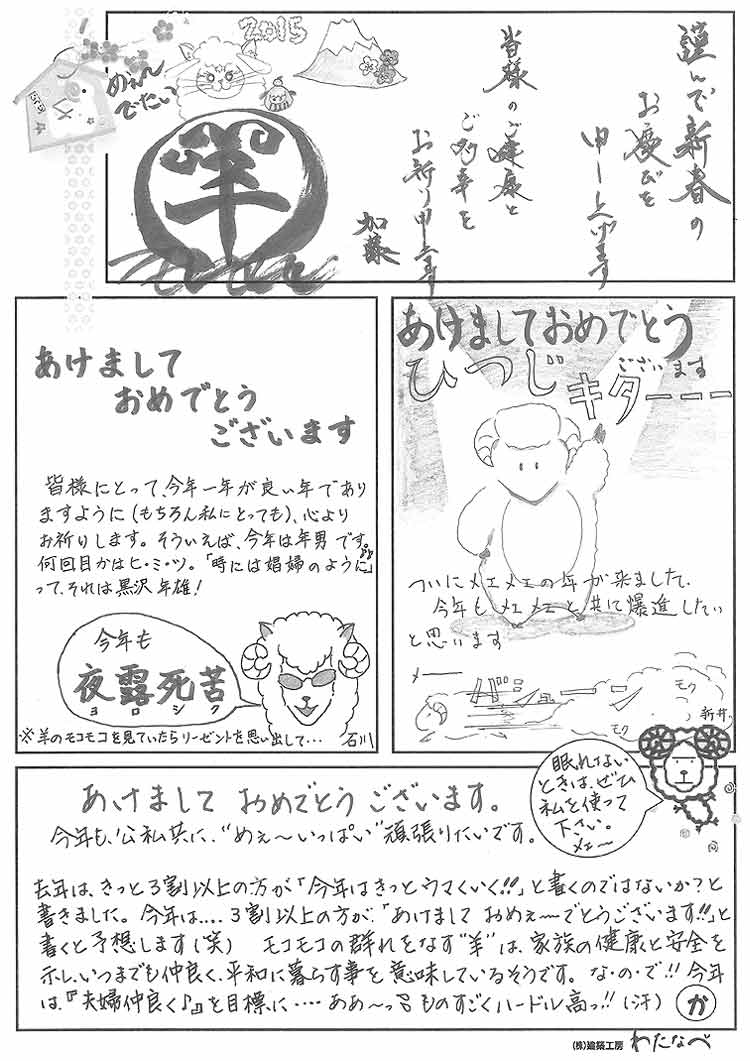 2015
めぇ〜
でたい
羊
謹んで新春の
お慶びを
申し上げます
皆様のご健康と
ご多幸を
お祈り申上ます
加藤
あけまして
おめでとう
ございます
皆様にとって、今年一年が良い年であり
ますように(もちろん私にとっても)、心より
お祈りします。そういえば、今年は年男です。
何回目かはヒ・ミ・ツ。「時には娼婦のように♪」
って、それは黒沢年雄!
今年も
夜露死苦
ヨロシク
※羊のモコモコを見ていたらリーゼントを思い出して…
石川
あけましておめでとう
ございます
ひつじ
キターーー
ついにメェメェの年が来ました、
今年もメェメェと共に爆進したい
と思います
メー
モク
モク
新井。
あけまして おめでとう ございます。
今年も、公私共に、“めぇ〜いっぱい”頑張りたいです。
眠れない
ときは、ぜひ
私を使って
下さい。
メェ〜
去年は、きっと3割以上の方が「今年はきっとウマくいく!!」と書くのではないか?と
書きました。今年は....3割以上の方が、「あけまして おめぇ〜でとうございます!!」と
書くと予想します(笑) モコモコの群れをなす“羊”は、家族の健康と安全を
示し、いつまでも仲良く、平和に暮らす事を意味しているそうです。な・の・で!!今年
は、『夫婦仲良く♪』を目標に‥‥ ああ〜っ ものすごくハードル高っ!!(汗) か
(株)建築工房 わたなべ